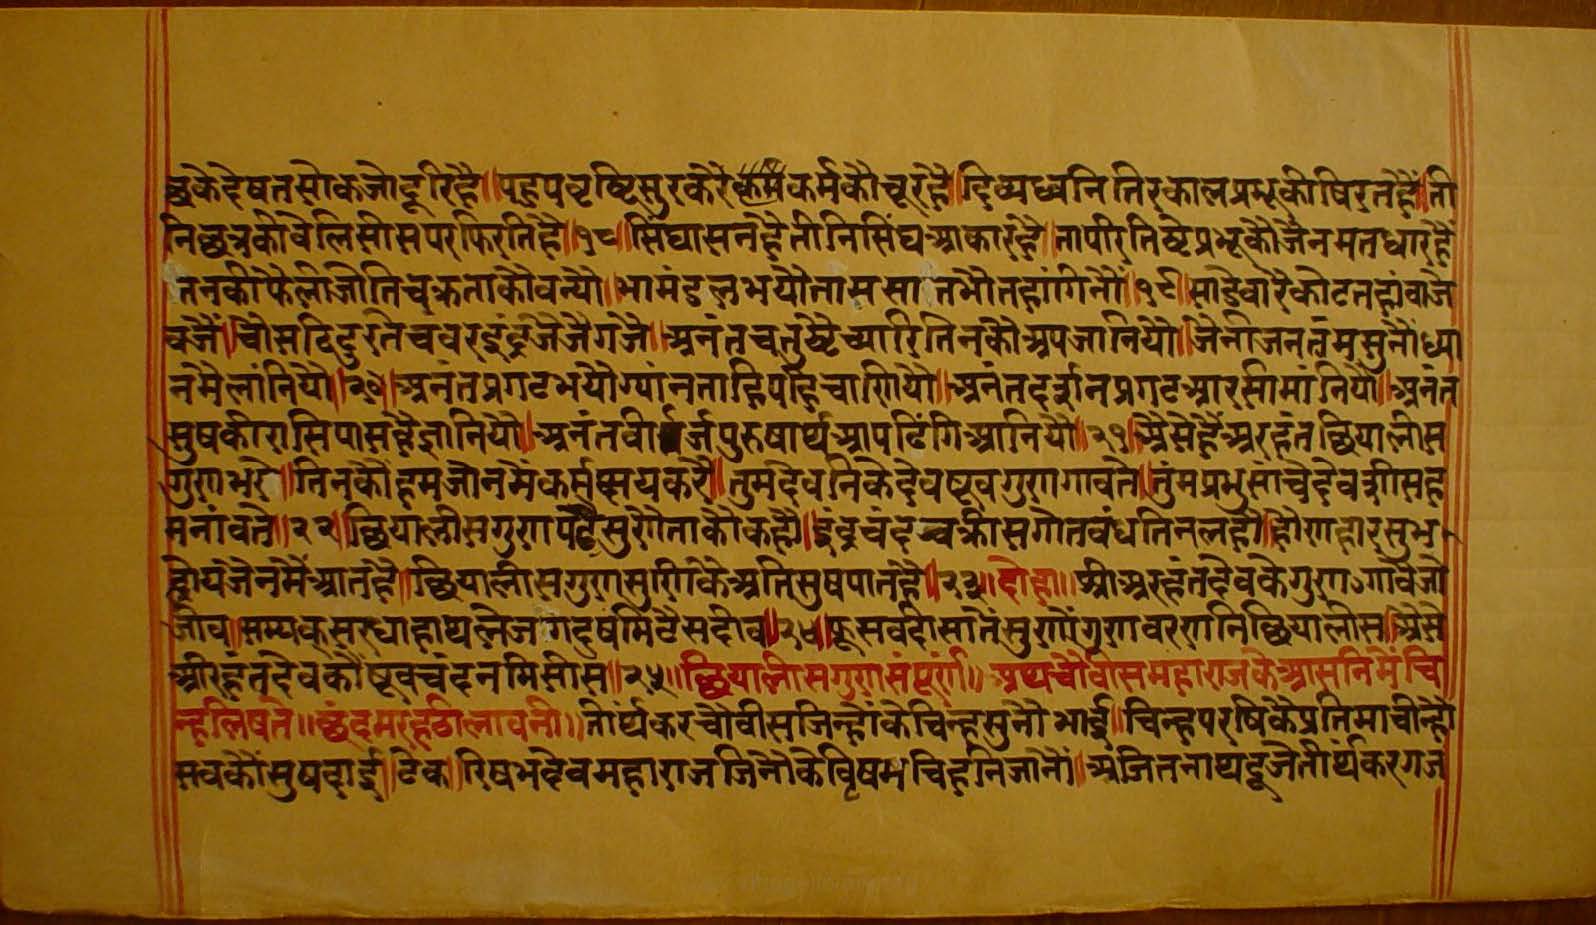 छकेदेषतसोकजोदूरिहै॥पहुपवृष्टिसुरकरैकर्मकौचूरहै॥दिव्यध्वनितिरकालप्रभूकीषिरतहै॥ती
निछत्रकीवेलिसीसपरफिरतिहै॥१८॥सिंघासनहैतीनिसिंघआकारहै॥तापरितिष्टेप्रभूकौजैनमतधारहै
तनकीफैलीजोतिचक्रताकौवन्यौ॥भामंडलभयौनामसातभौतहांगिनौं॥१९॥साढेवारैकोटतहांवाजे
वजैं॥चौसठिढुरतिचवरइंद्रजैजैगजै॥अनंतचतुष्टैच्यारितिनकौअपजानियौ॥जैनीजनतंमसुनौंध्या
नमैलांनियौ॥२०॥अनंतप्रगटभयौग्यांनताहिपहिचाणियौ॥अनंतदर्शनप्रगटआरसीमांनियौ॥अनंत
सुषकीरासिपासवैजानियौ॥अनंतवीर्जपुरुषार्थआपढिंगिआनियौ॥२१॥अैसेहैंअरहंतछियालीस
गुणभरे॥तिनकौहमजोनमैंकर्मसवषयकरै॥तुमदेवनिकेदेवषूवगुणगावते॥तुंमप्रभुसांचेदेवशीसह
मनांवते॥२२॥छियालीसगुणपढैसुणैताकौकहौ॥इंद्रचंदचक्रीसगोतवंधतिनलहौ॥होणहारसुभ
होयजैनमैंआतहै॥छियालीसगुणसुणिकैअतिसुषपातहै॥२३॥दोहा॥श्रीअरहंतदेवकेगुणऽगावैजो
जीव॥सम्यकसरधाहाथलेजगदुषमिटैसदीव॥२४॥फूसवदीसातेसुणोंगुणवरणनिछियालीस॥अैसे
श्रीरहंतदेवकौंषूवचंदनमिसीस॥२५॥छियालीसगुणसंपूर्णं॥अथचौवीसमहाराजकेआसनिमेंचि
न्हलिषते॥छंदमरहठीलावनी॥तीर्थंकरचौवीसजिन्होंकेचिन्हसुनौभाई॥चिन्हपरषिकैप्रतिमाचीन्हौ
सवकौंसुषदाई॥टेक॥रिषभदेवमहाराजजिनौकेवृिषभचिहनिजानौं॥अजितनाथदूजैतीर्थंकरगज